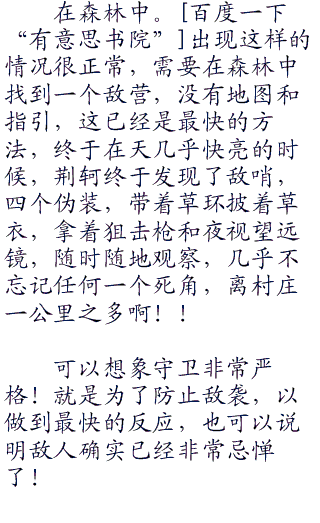 在森林中。[百度一下
“有意思书院”]出现这样的
情况很正常，需要在森林中
找到一个敌营，没有地图和
指引，这已经是最快的方
法，终于在天几乎快亮的时
候，荆轲终于发现了敌哨，
四个伪装，带着草环披着草
衣，拿着狙击枪和夜视望远
镜，随时随地观察，几乎不
忘记任何一个死角，离村庄
一公里之多啊！！
可以想象守卫非常严
格！就是为了防止敌袭，以
做到最快的反应，也可以说
明敌人确实已经非常忌惮
了！